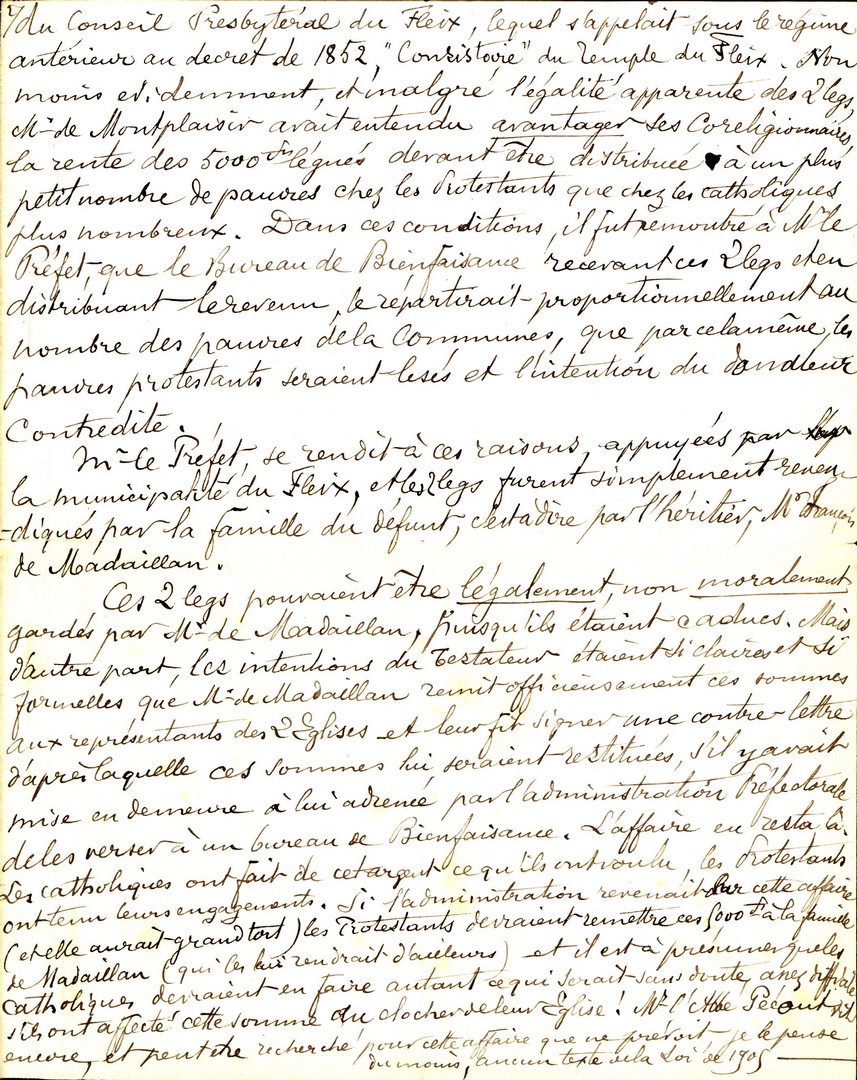 2/ du Conseil Presbytéral du Fleix, lequel s'appelait sous le régime
antérieur au decret de 1852, "Consistoire" du Temple du Fleix. Non
moins evidemment, et malgré l'égalité apparente des 2 legs,
Mr de Montplaisir avait entendu avantager ses Coreligionnaires,
la rente des 5000 frs légués devant être distribuée à un plus
petit nombre de pauvres chez les Protestants que chez les catholiques
plus nombreux. Dans ces conditions, il fut remontré à Mr le
Préfet, que le Bureau de Bienfaisance recevant ces 2 legs et en
distribuant le revenu, le répartirait proportionnellement au
nombre des pauvres de la Communes, que par cela même, les
pauvres protestants seraient lesés et l'intention du donateur
Contredite.
Mr le Préfet, se rendit à ces raisons, appuyées par
la municipalité du Fleix, et les 2 legs furent simplement reven-
-diqués par la famille du défunt, c'est à dire par l'héritier, Mr François
de Madaillan.
Ces 2 legs pouvaient être légalement, non moralement
gardés par Mr de Madaillan, puisqu'ils étaient caducs. Mais
d'autre part, les intentions du Testateur étaient si claires et si
formelles que Mr de Madaillan remit officieusement ces sommes
aux représentants des 2 Eglises et leur fit signer une contre-lettre
d'après laquelle ces sommes lui seraient restituées, s'il y avait
mise en demeure à lui adressée par l'administration Préfectorale
de les verser à un bureau de Bienfaisance. L'affaire en resta là.
Les catholiques ont fait de cet argent ce qu'ils ont voulu, les Protestants
ont tenu leurs engagements. Si l'administration revenait sur cette affaire
(et elle aurait grand tort) les Protestants devraient remettre ces 5000 fr à la famille
de Madaillan (qui les lui rendrait d'ailleurs) et il est à présumer que les
Catholiques devraient en faire autant ce qui serait sans doute assez difficile
s'ils ont affecté cette somme au clocher de leur Eglise! Mr l'Abbé Pécout vit
encore, et peut être recherché pour cette affaire que ne prévoit je le pense
du moins, aucun texte de la Loi de 1905